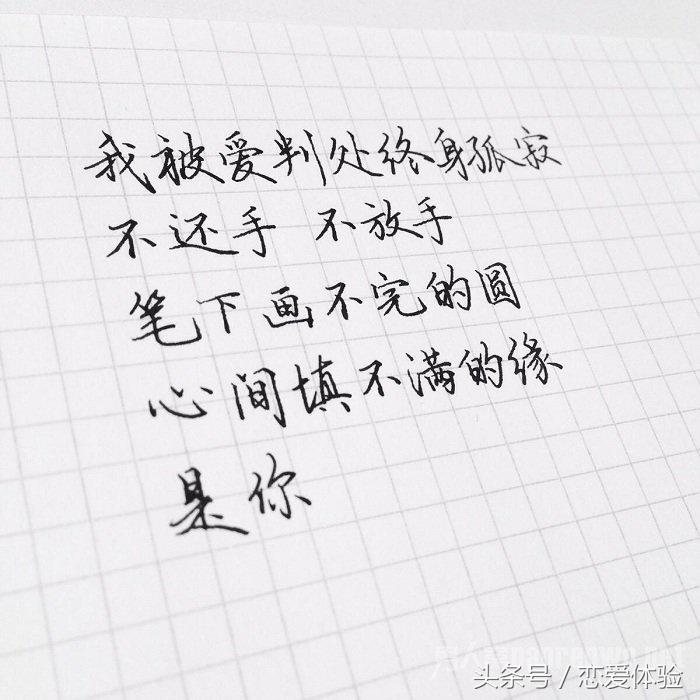 我被爱判处终身孤寂
不还手 不放手
笔下画不完的圆
心间填不满的缘
是你
头条号 / 恋爱体验